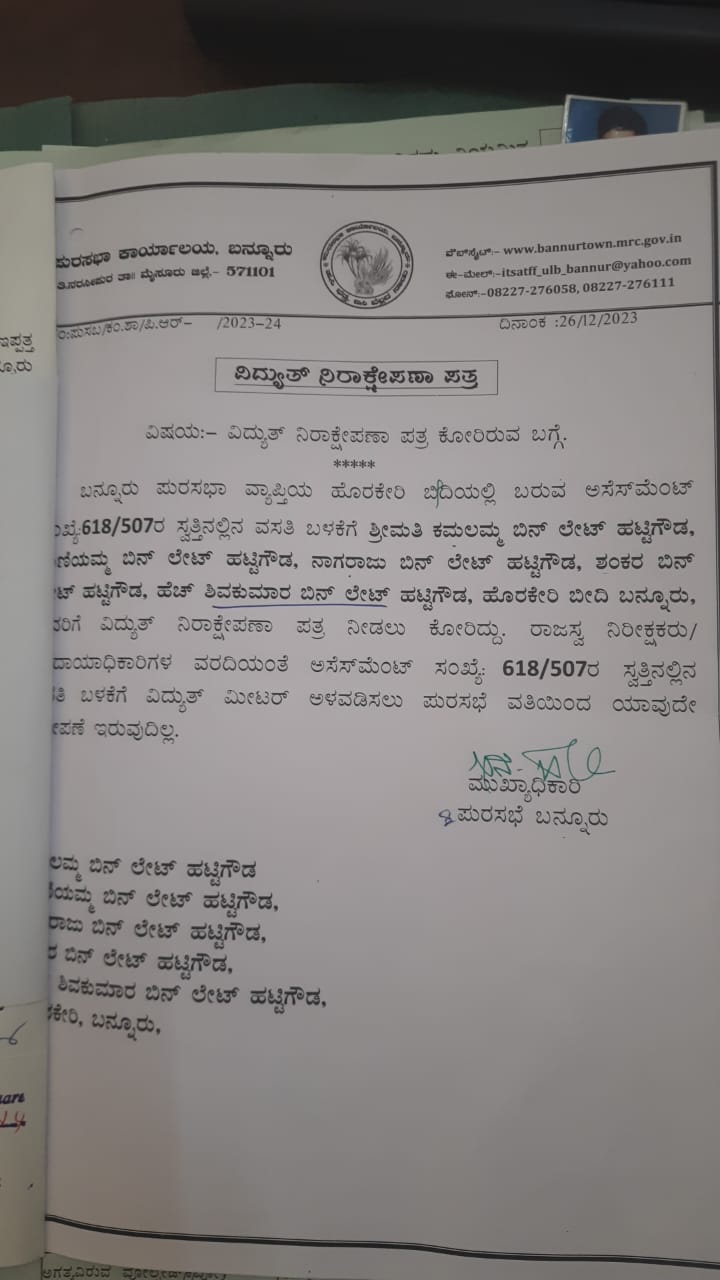 ಪುರಸಭಾ ಕಾರ್ಯಾಲಯ, ಬನ್ನೂರು
ತಿ.ನರಸೀಪುರ ತಾ॥ ಮೈಸೂರು ಜಿಲ್ಲೆ.- 571101
ವೆಬ್‌ಸೈಟ್:- www.bannurtown.mrc.gov.in
ಈ-ಮೇಲ್:-itsatff_ulb_bannur@yahoo.com
ಫೋನ್:-08227-276058, 08227-276111
ಸಂ:ಪುಸಬ/ಕಂ.ಶಾ/ಪಿ.ಆರ್- /2023-24
ದಿನಾಂಕ :26/12/2023
ವಿದ್ಯುತ್ ನಿರಾಕ್ಷೇಪಣಾ ಪತ್ರ
ವಿಷಯ:- ವಿದ್ಯುತ್ ನಿರಾಕ್ಷೇಪಣಾ ಪತ್ರ ಕೋರಿರುವ ಬಗ್ಗೆ.
*****
ಬನ್ನೂರು ಪುರಸಭಾ ವ್ಯಾಪ್ತಿಯ ಹೊರಕೇರಿ ಬೀದಿಯಲ್ಲಿ ಬರುವ ಅಸೆಸ್‌ಮೆಂಟ್
ಂಖ್ಯೆ:618/507ರ ಸ್ವತ್ತಿನಲ್ಲಿನ ವಸತಿ ಬಳಕೆಗೆ ಶ್ರೀಮತಿ ಕಮಲಮ್ಮ ಬಿನ್ ಲೇಟ್ ಹಟ್ಟಿಗೌಡ,
ಣಿಯಮ್ಮ ಬಿನ್ ಲೇಟ್ ಹಟ್ಟಿಗೌಡ, ನಾಗರಾಜು ಬಿನ್ ಲೇಟ್ ಹಟ್ಟಿಗೌಡ, ಶಂಕರ ಬಿನ್
ಟ್ ಹಟ್ಟಿಗೌಡ, ಹೆಚ್ ಶಿವಕುಮಾರ ಬಿನ್ ಲೇಟ್ ಹಟ್ಟಿಗೌಡ, ಹೊರಕೇರಿ ಬೀದಿ ಬನ್ನೂರು,
ವರಿಗೆ ವಿದ್ಯುತ್ ನಿರಾಕ್ಷೇಪಣಾ ಪತ್ರ ನೀಡಲು ಕೋರಿದ್ದು. ರಾಜಸ್ವ ನಿರೀಕ್ಷಕರು/
ದಾಯಾಧಿಕಾರಿಗಳ ವರದಿಯಂತೆ ಅಸೆಸ್‌ಮೆಂಟ್ ಸಂಖ್ಯೆ: 618/507ರ ಸ್ವತ್ತಿನಲ್ಲಿನ
ತಿ ಬಳಕೆಗೆ ವಿದ್ಯುತ್ ಮೀಟರ್ ಅಳವಡಿಸಲು ಪುರಸಭೆ ವತಿಯಿಂದ ಯಾವುದೇ
ೇಪಣೆ ಇರುವುದಿಲ್ಲ.
ಮುಖ್ಯಾಧಿಕಾರಿ
ಪುರಸಭೆ ಬನ್ನೂರು
ಲಮ್ಮ ಬಿನ್ ಲೇಟ್ ಹಟ್ಟಿಗೌಡ
ಯಮ್ಮ ಬಿನ್ ಲೇಟ್ ಹಟ್ಟಿಗೌಡ,
ರಾಜು ಬಿನ್ ಲೇಟ್ ಹಟ್ಟಿಗೌಡ,
ರ ಬಿನ್ ಲೇಟ್ ಹಟ್ಟಿಗೌಡ,
ಶಿವಕುಮಾರ ಬಿನ್ ಲೇಟ್ ಹಟ್ಟಿಗೌಡ,
ಕೇರಿ, ಬನ್ನೂರು,